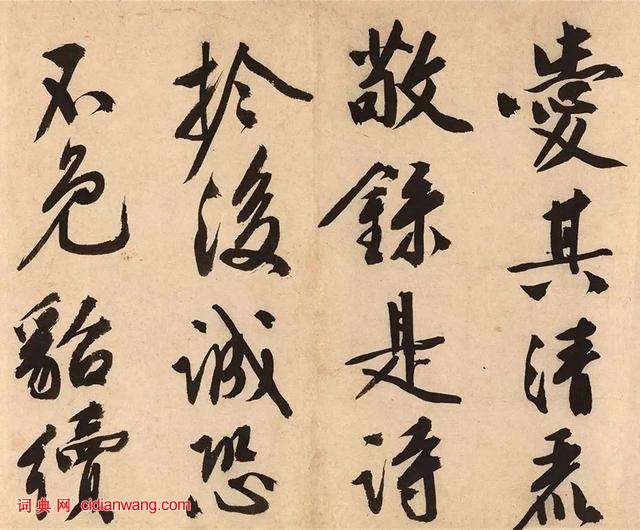 愛其清麗
敬錄是詩
於後誠恐
不免貂續
词典网：cidianwang.com